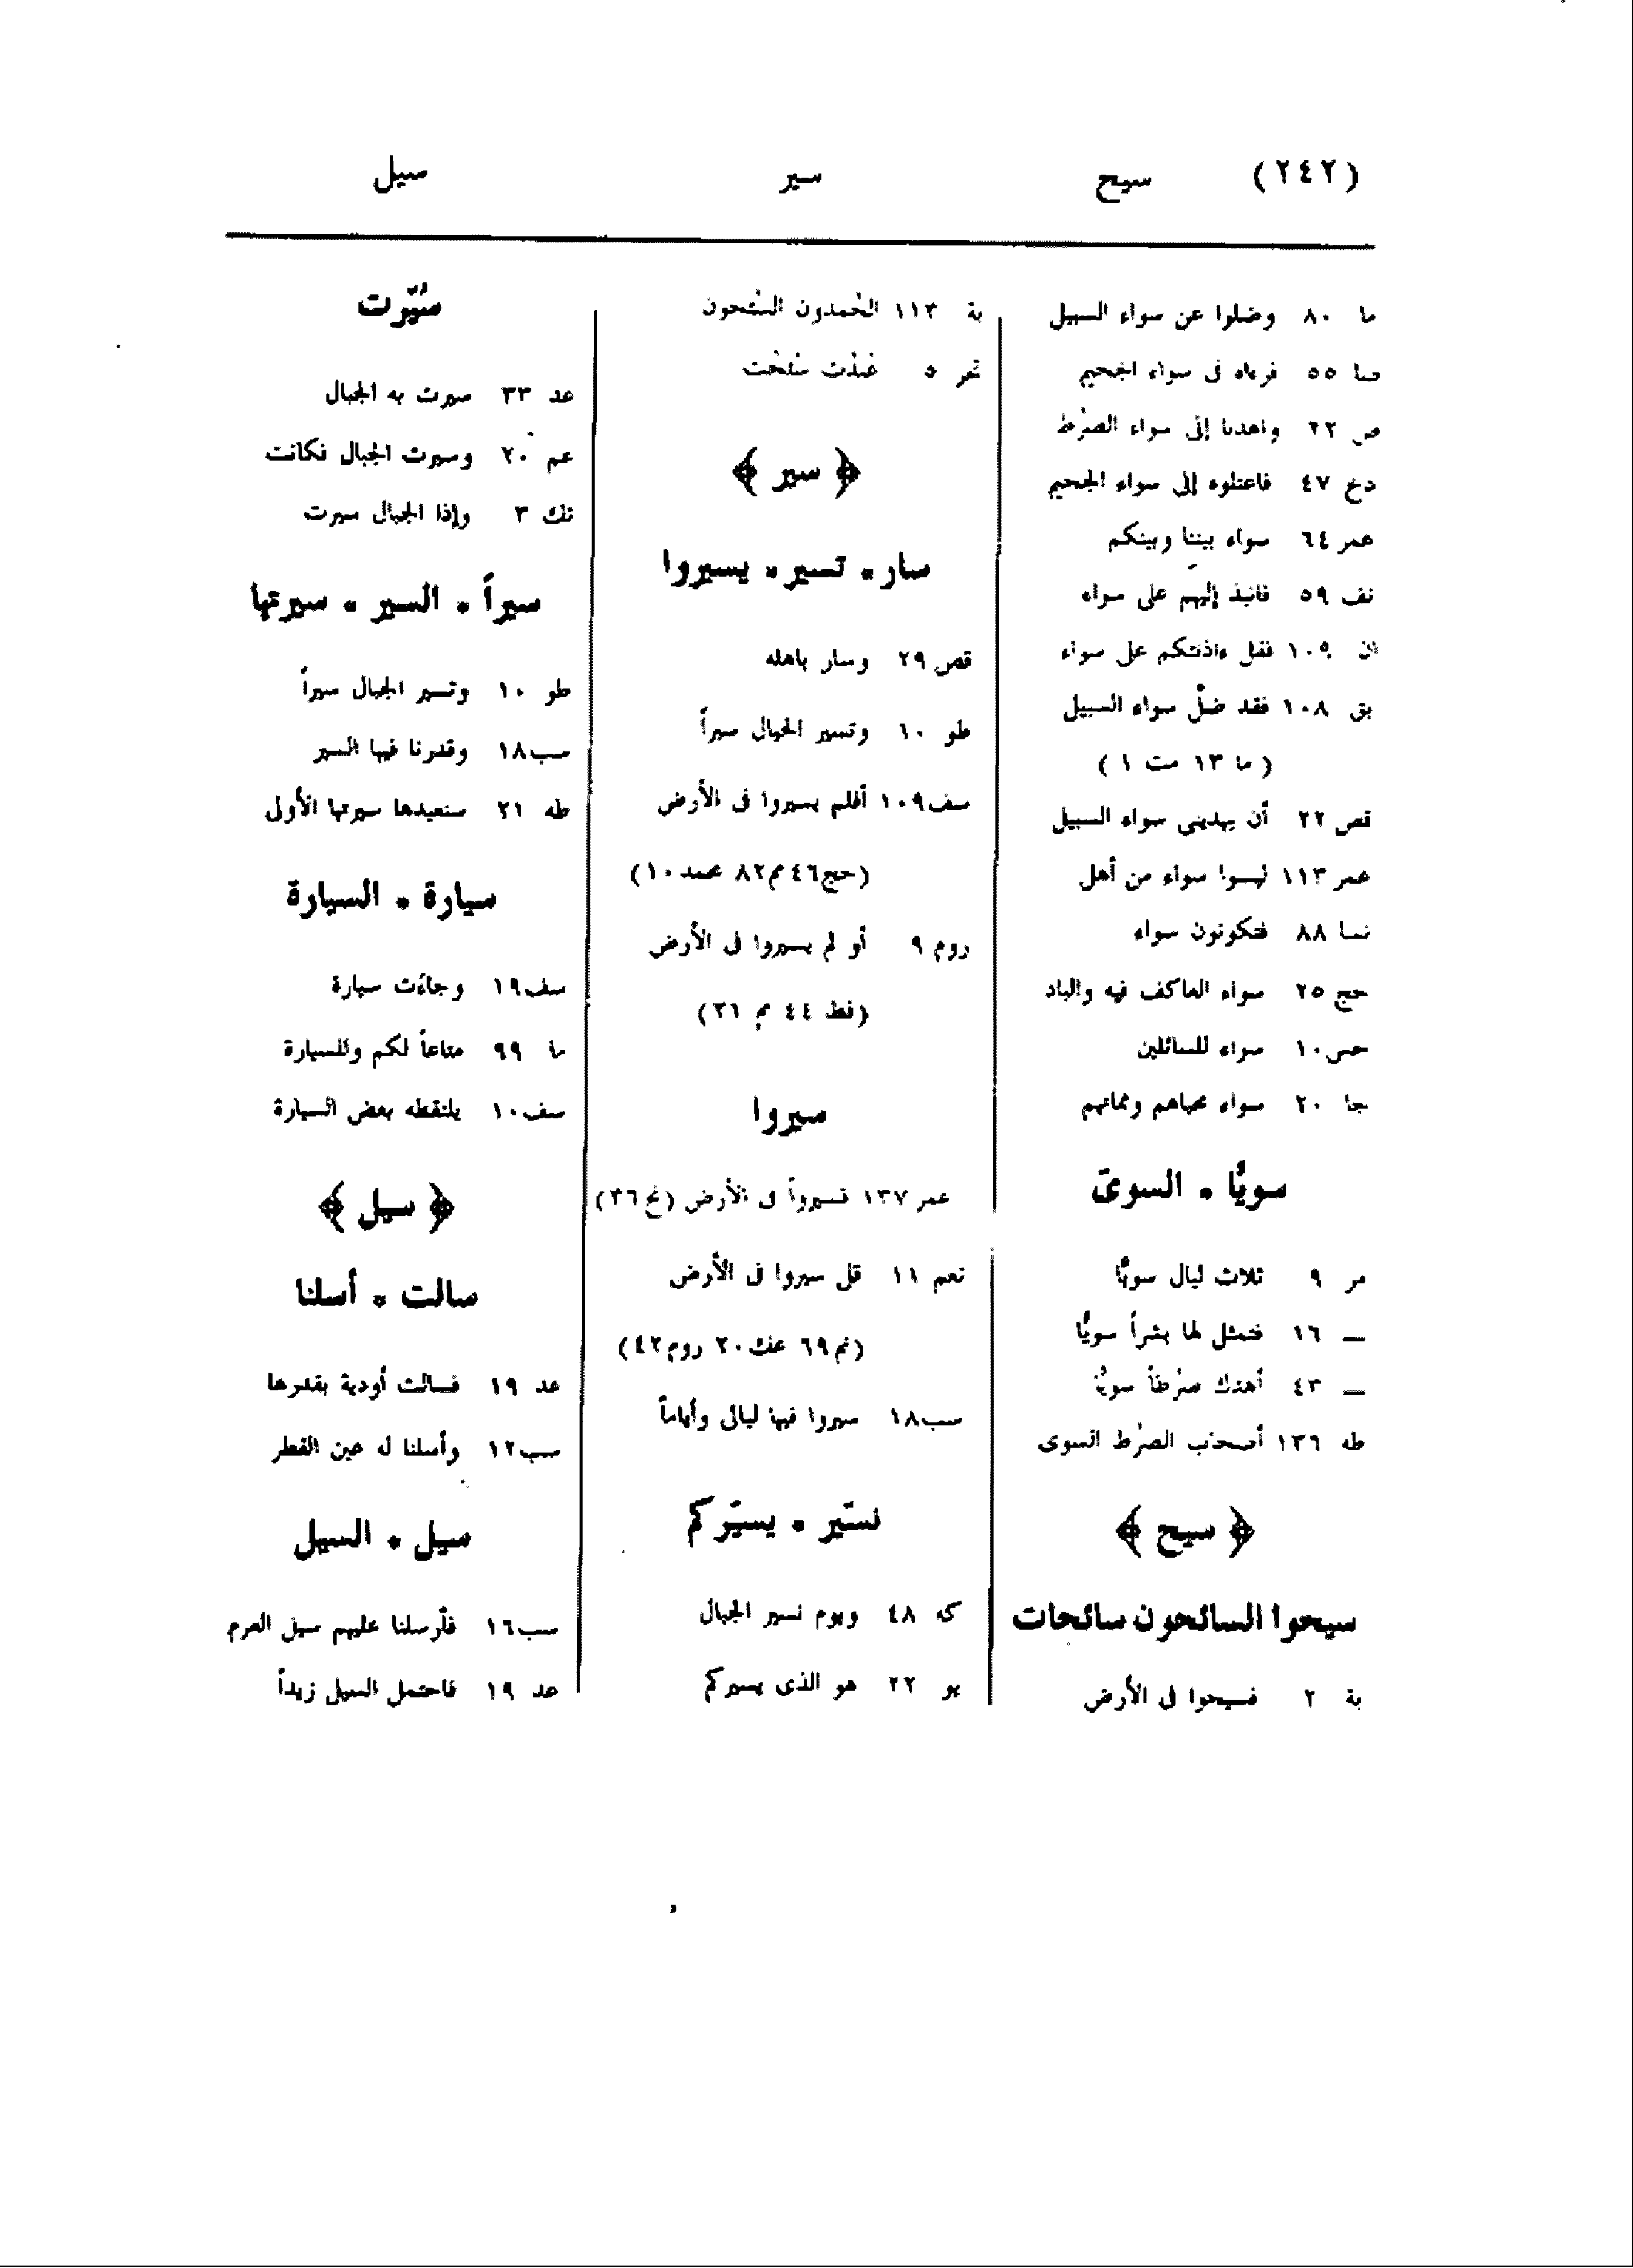 (٢٤٢) سيح سير سيل
ما ٨٠ وضلوا عن سواء السبيل
صا ٥٥ فرءاه فى سواء الجحيم
ص ٢٢ واهدنا إلى سواء الصرٰط
دخ ٤٧ فاعتلوه إلى سواء الجحيم
عمر ٦٤ سواء بيننا وبينكم
نف ٥٩ فانبذ إليهم على سواء
ان ١٠٩ فقل ءاذنتكم على سواء
بق ١٠٨ فقد ضلّ سواء السبيل
( ما ١٣ مت ١ )
قص ٢٢ أن يهدينى سواء السبيل
عمر ١١٣ ليسوا سواء من أهل
نسا ٨٨ فتكونون سواء
حج ٢٥ سواء العاكف فيه والباد
حس ١٠ سواء للسائلين
جا ٢٠ سواء محياهم ومماتهم
سويًّا ٠ السوىّ
مر ٩ ثلاث ليال سويًّا
— ١٦ فتمثل لها بشراً سويًّا
— ٤٣ أهدك صرٰطاً سويًّا
طه ١٣٦ أصحٰب الصرٰط السوى
﴿ سيح ﴾
سيحوا السائحون سائحات
بة ٢ فسيحوا فى الأرض
بة ١١٣ الحٰمدون السٰئحون
تحر ٥ عٰبدٰت سٰئحٰت
﴿ سير ﴾
سار ٠ تسير ٠ يسيروا
قص ٢٩ وسار باهله
طو ١٠ وتسير الجبال سيراً
سف ١٠٩ أفلم يسيروا فى الأرض
(حج ٤٦ مم ٨٢ محمد ١٠)
روم ٩ أو لم يسيروا فى الأرض
(فط ٤٤ مم ٢١)
سيروا
عمر ١٣٧ فسيرواً فى الأرض (نح ٣٦)
نعم ١١ قل سيروا فى الأرض
(نم ٦٩ عنك ٢٠ روم ٤٢)
سب ١٨ سيروا فيها ليالى وأياماً
نسيّر ٠ يسيّركم
كه ٤٨ ويوم نسير الجبال
يو ٢٢ هو الذى يسيركم
سُيّرت
عد ٣٣ سيرت به الجبال
عم ٢٠ وسيرت الجبال فكانت
تك ٣ وإذا الجبال سيرت
سيراً ٠ السير ٠ سيرتها
طو ١٠ وتسير الجبال سيراً
سب ١٨ وقدرنا فيها السير
طه ٢١ سنعيدها سيرتها الأولى
سيارة ٠ السيارة
سف ١٩ وجاءت سيارة
ما ٩٩ متاعاً لكم وللسيارة
سف ١٠ يلتقطه بعض السيارة
﴿ سيل ﴾
سالت ٠ أسلنا
عد ١٩ فسالت أودية بقدرها
سب ١٢ وأسلنا له عين القطر
سيل ٠ السيل
سب ١٦ فأرسلنا عليهم سيل العرم
عد ١٩ فاحتمل السيل زبداً